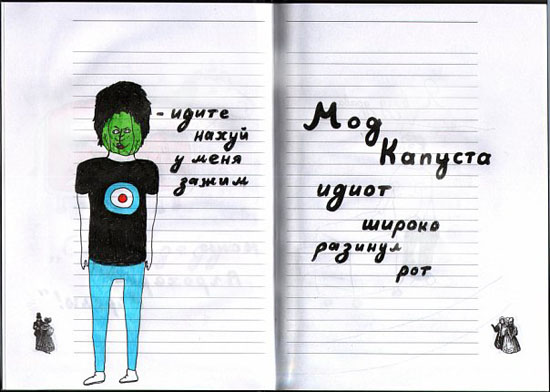 - идите
нахуй
у меня
зажим
Мод
Капуста
идиот
широко
разинул
рот